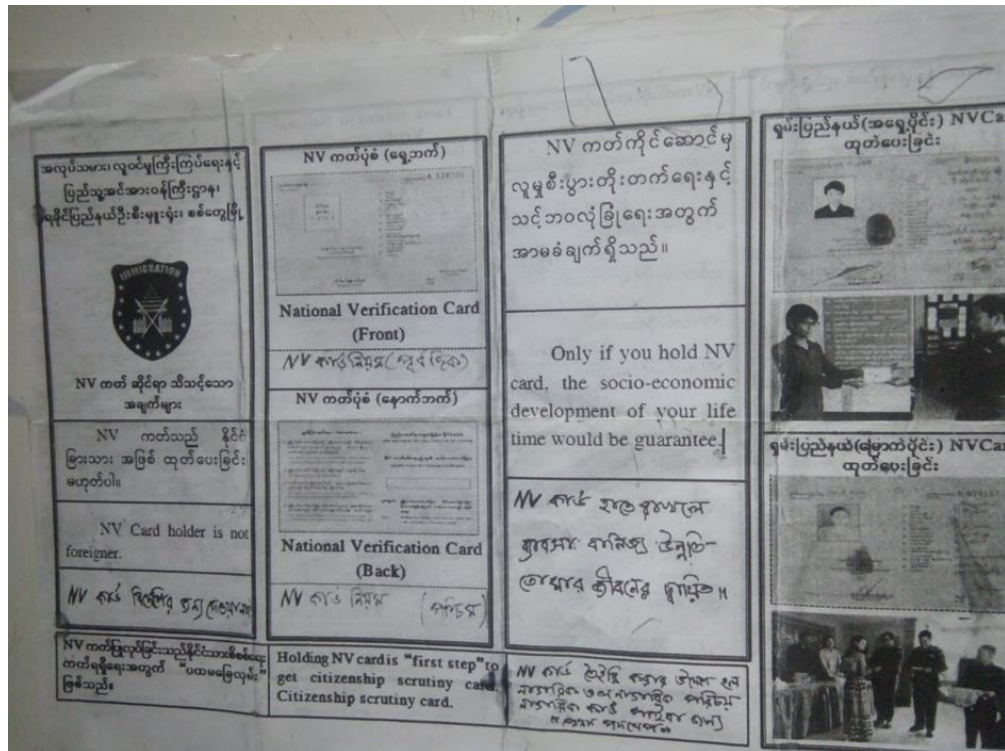 အလုပ်သမား၊ လူဝင်မှုကြီးကြပ်ရေးနှင့်
ပြည်သူ့အင်အားဝန်ကြီးဌာန၊
ရခိုင်ပြည်နယ်ဦးစီးမှူးရုံး၊ စစ်တွေမြို့
IMMIGRATION
NV ကတ် ဆိုင်ရာ သိသင့်သော
အချက်များ
NV ကတ်သည် နိုင်ငံ
ခြားသား အဖြစ် ထုတ်ပေးခြင်း
မဟုတ်ပါ။
NV Card holder is not
foreigner.
NV কার্ড
NV ကတ်ပြုလုပ်ခြင်းသည်နိုင်ငံသားစိစစ်ရေး
ကတ်ရရှိရေးအတွက် "ပထမခြေလှမ်း"
ဖြစ်သည်။
NV ကတ်ပုံစံ (ရှေ့ဘက်)
National Verification Card
(Front)
NV কার্ড নিয়ম
NV ကတ်ပုံစံ (နောက်ဘက်)
National Verification Card
(Back)
NV কার্ড নিয়ম (পশ্চিম)
Holding NV card is "first step" to
get citizenship scrutiny card.
Citizenship scrutiny card.
NV ကတ်ကိုင်ဆောင်မှ
လူမှုစီးပွားတိုးတက်ရေးနှင့်
သင့်ဘဝလုံခြုံရေးအတွက်
အာမခံချက်ရှိသည်။
Only if you hold NV
card, the socio-economic
development of your life
time would be guarantee.
NV কার্ড হাতে থাকলে
ব্যবসা বানিজ্য উন্নতি
তোমার জীবনের দ্বায়িত্ব।।
NV কার্ড
নাগরিক
নাগরিক কার্ড পাইবা জন্য
ရှမ်းပြည်နယ်(အရှေ့ပိုင်း) NVCa
ထုတ်ပေးခြင်း
ရှမ်းပြည်နယ်(မြောက်ပိုင်း) NVCa
ထုတ်ပေးခြင်း